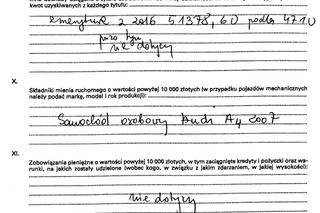 kwot uzyskiwanych z każdego tytułu:
emerytura z 2016 51378,60 podle 4710
poza tym
nie dotyczy
X.
Składniki mienia ruchomego o wartości powyżej 10 000 złotych (w przypadku pojazdów mechanicznych
należy podać markę, model i rok produkcji):
Samochód osobowy Audi A4 2007
XI.
Zobowiązania pieniężne o wartości powyżej 10 000 złotych, w tym zaciągnięte kredyty i pożyczki oraz wa-
runki, na jakich zostały udzielone (wobec kogo, w związku z jakim zdarzeniem, w jakiej wysokości):
nie dotyczy